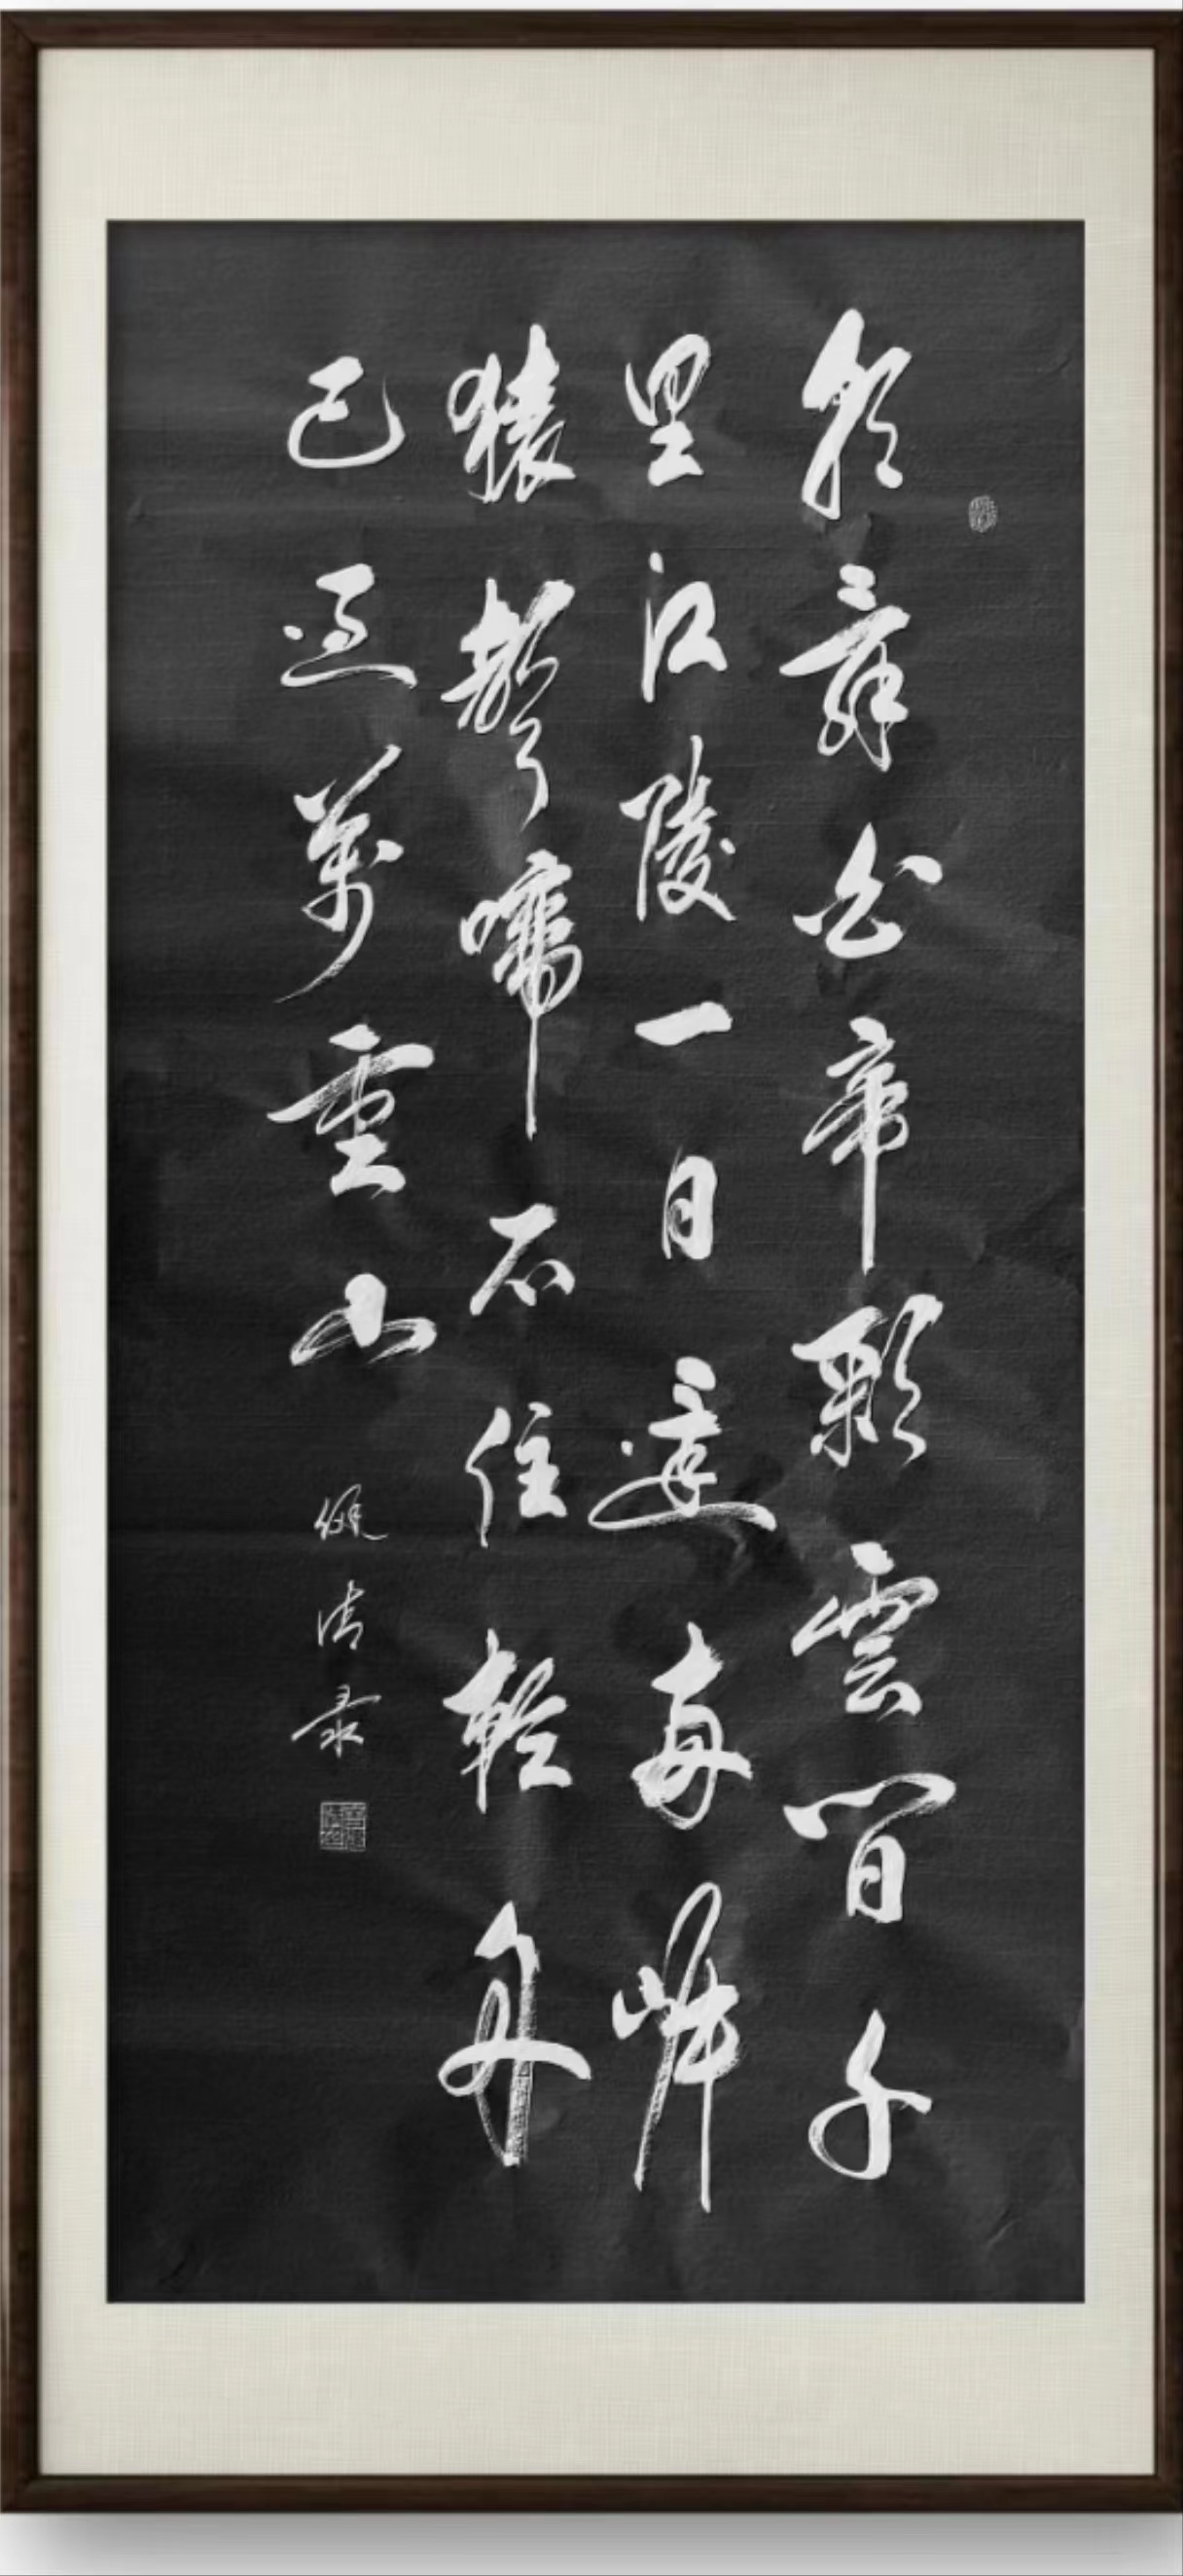 朝辭白帝彩雲間千
里江陵一日還兩岸
猿聲啼不住輕舟
已過萬重山
清录